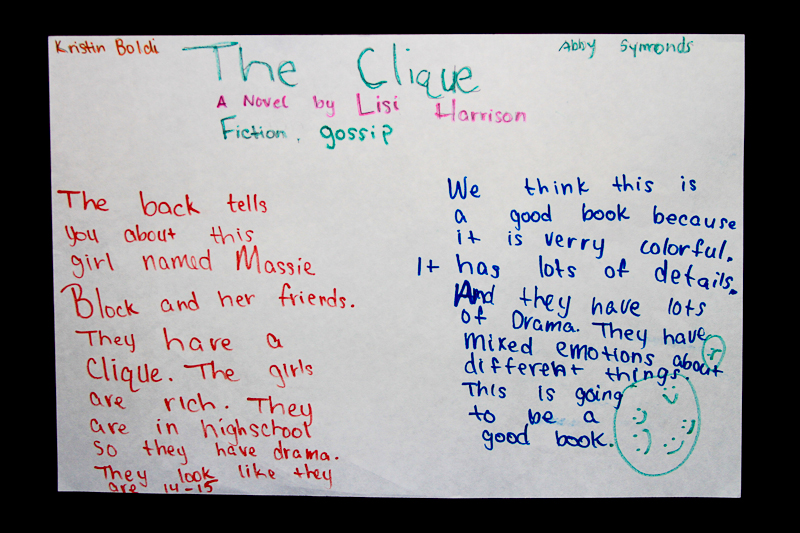 Kristin Boldi
Abby Symonds
The Clique
A Novel by Lisi Harrison
Fiction, gossip
The back tells
you about this
girl named Massie
Block and her friends.
They have a
Clique. The girls
are rich. They
are in highschool
so they have drama.
They look like they
are 14-15
We think this is
a good book because
it is verry colorful.
It has lots of details.
And they have lots
of Drama. They have
mixed emotions about
different things.
This is going
to be a
good book.